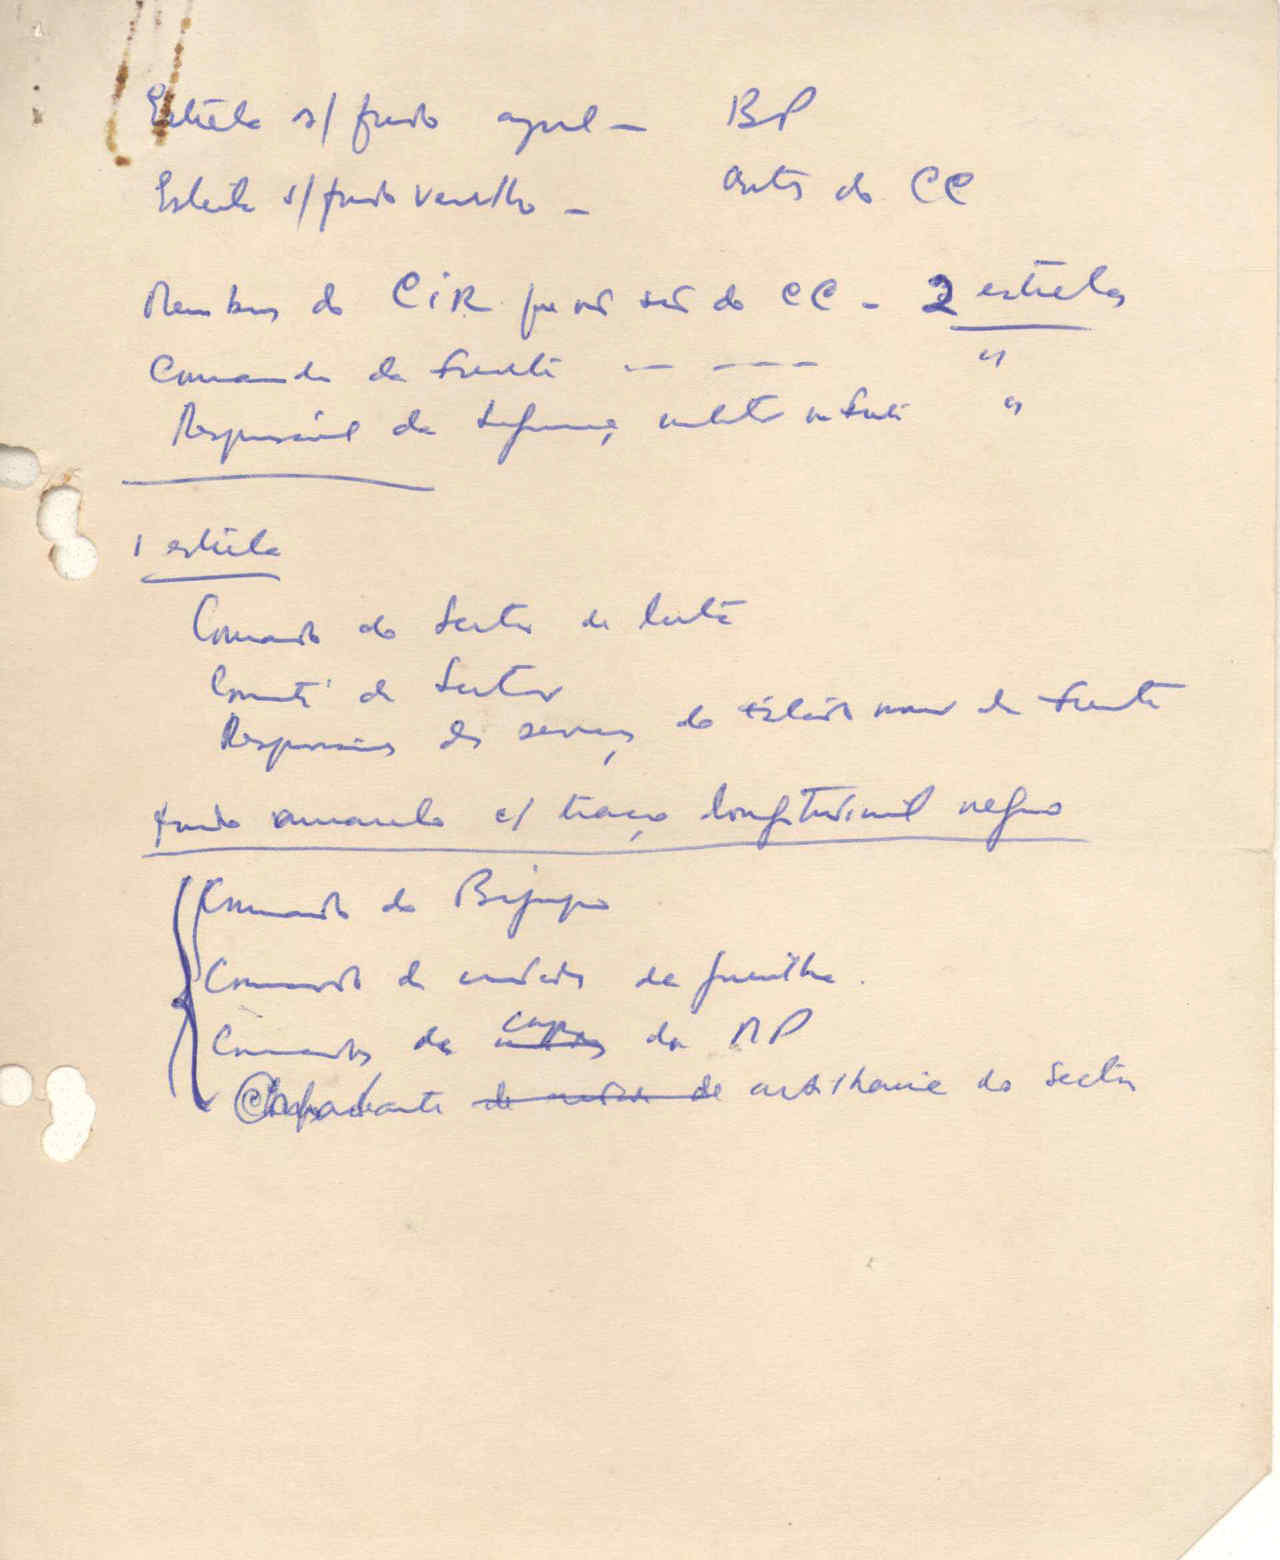 Estrela s/ fundo azul — BP
Estrela s/ fundo vermelho — Outros do CC
Membros do CiR que não são do CC — 2 estrelas
Comando da Frente — — — — "
Responsável da Segurança na Frente "
1 estrela
Comando do Sector de luta
Comité de Sector
Responsáveis dos serviços do Estado maior da Frente
fundo amarelo c/ traço longitudinal negro
Comando de Bigrupo
Comando de unidade de guerrilha.
Comandos de corpos da MP
Comandante de artilharia do Sector